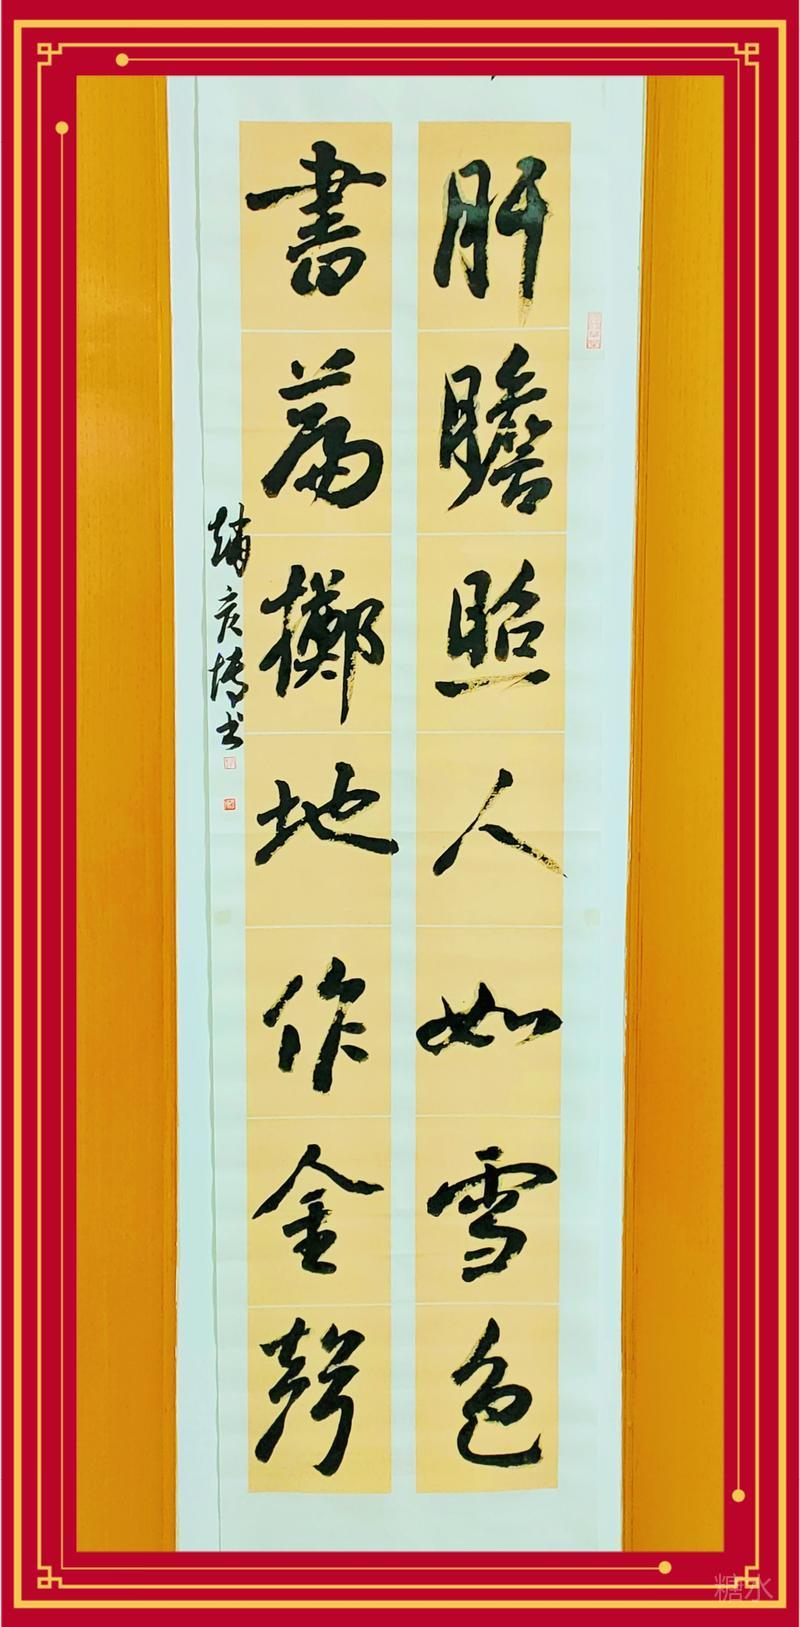 肝膽照人如雪色
書篇擲地作金聲
糖水